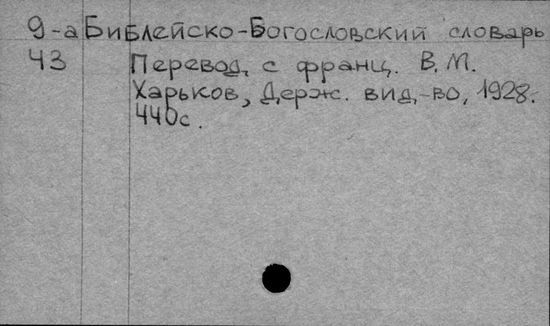 9-а Библейско-Богословский словарь
43 Перевод с франц. В.М.
Харьков, Держ. вид-во, 1928.
440с.